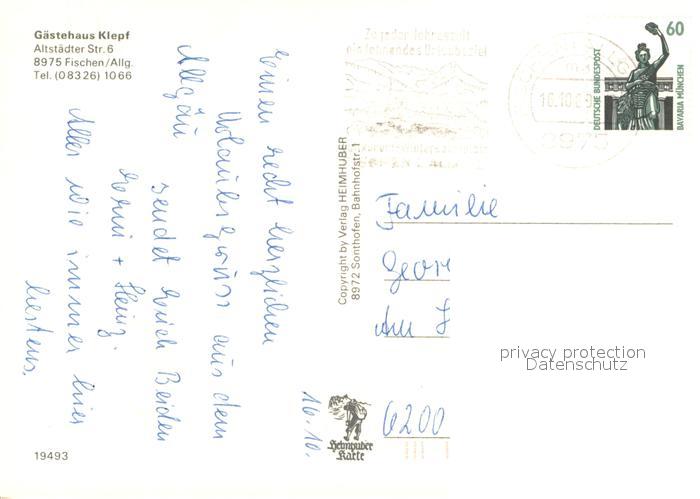 Gästehaus Klepf
Altstädter Str. 6
8975 Fischen/Allg.
Tel. (0 83 26) 10 66
Einen recht herzlichen
Urlaubsgruss aus dem
Allgäu
sendet Euch Beiden
Heinz.
Alles wie immer hier
bestens.
16.10.
19493
Copyright by Verlag HEIMHUBER
8972 Sonthofen, Bahnhofstr. 1
Heimhuber
Karte
Zu jeder Jahreszeit
ein lohnendes Urlaubsziel
16.10
8975
60
DEUTSCHE BUNDESPOST
BAVARIA MÜNCHEN
Familie
Georg
Am
6200
privacy protection
Datenschutz